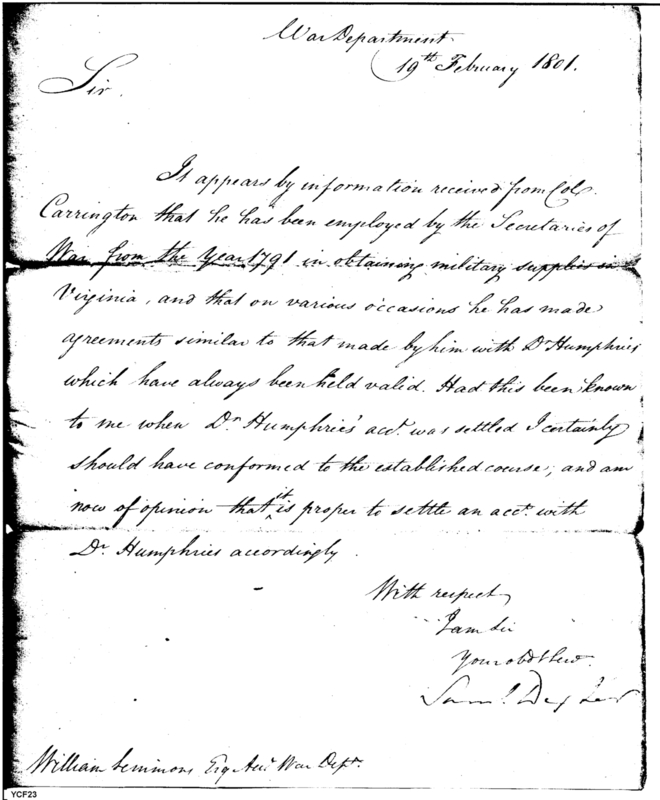 War Department
19th February 1801.
Sir.
It appears by information received from Col.
Carrington that he has been employed by the Secretaries of
War from the Year 1791 in obtaining military supplies in
Virginia, and that on various occasions he has made
agreements similar to that made by him with Dr Humphries
which have always been held valid. Had this been known
to me when Dr Humphries' acct. was settled I certainly
should have conformed to the established course; and am
now of opinion that it is proper to settle an acct. with
Dr Humphries accordingly.
With respect
I am Sir
Your obdt Serv.
Saml. Dexter
William Simmons Esq Acct War Dept.
YCF23